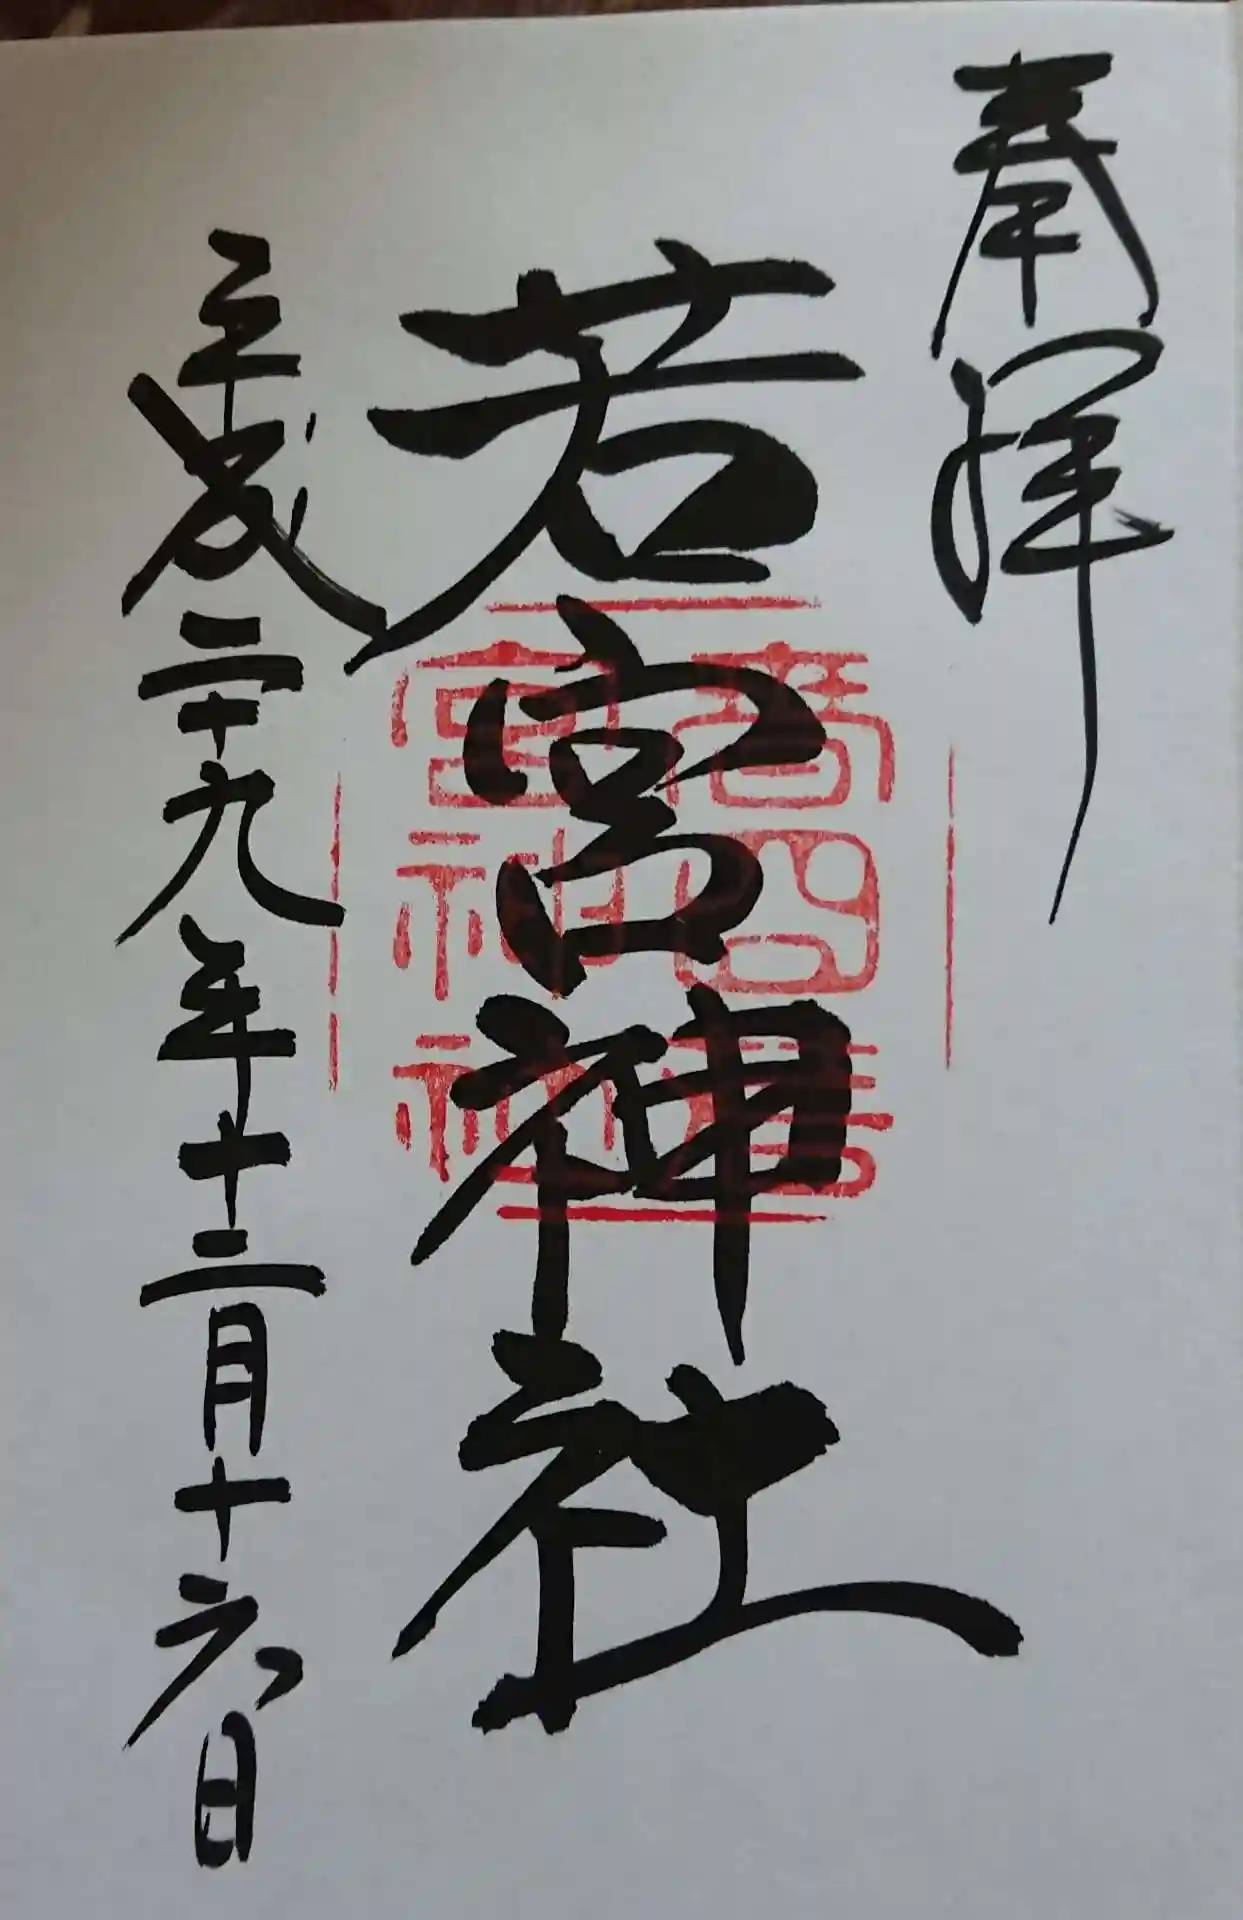 奉拝
若宮神社
平成二十九年十二月十六日
宮神社